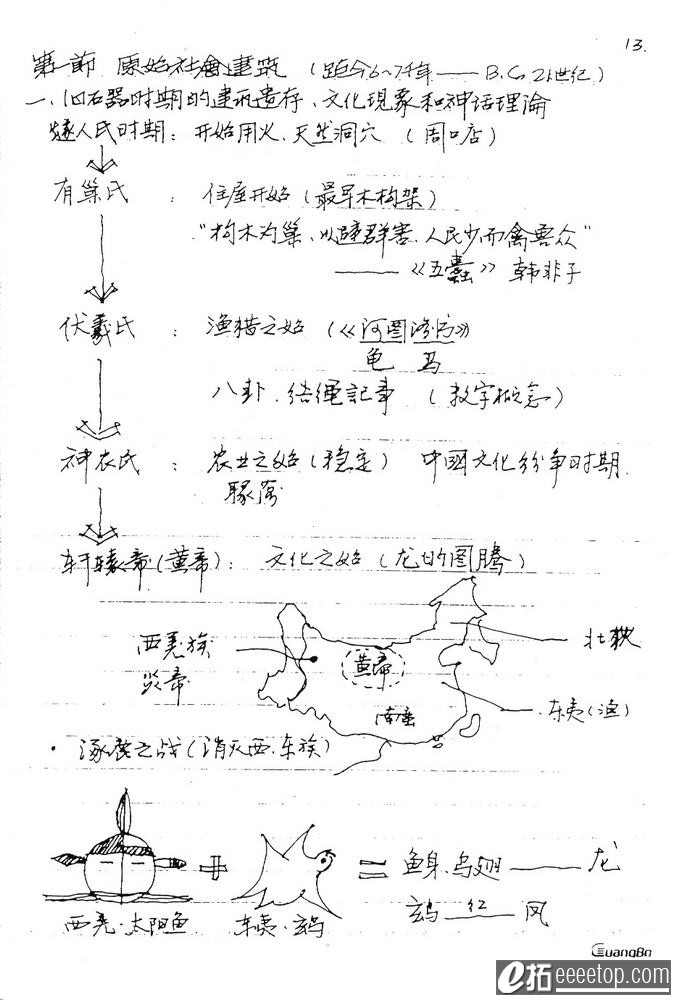 13.
第一节 原始社會建筑 (距今6~7千年——B.C. 21世纪)
一、旧石器时期的建筑遗存、文化现象和神话理論
燧人氏时期: 开始用火、天然洞穴 (周口店)
有巢氏 : 住屋开始 (最早木构架)
"构木为巢、以避群害、人民少而禽兽众"
——《五蠹》 韩非子
伏羲氏 : 渔猎之始 (《河图洛书》
龟 马
八卦、结绳記事 (数字概念)
神农氏 : 农业之始 (稳定) 中國文化纷争时期
轩辕帝(黄帝): 文化之始 (龙的图腾)
西羌族
炎帝
黄帝
北狄
南蛮
东夷(渔)
· 涿鹿之战 (消灭西、东族)
+ = 鱼身、鸟翅 —— 龙
玄鸟 红 凤
西羌·太阳鱼 东夷·玄鸟
GuangBo
e拓 eeeetop.com